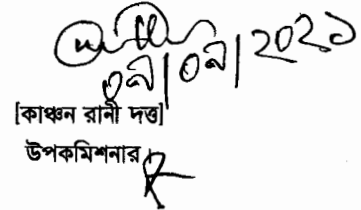 ০৯|০৯|২০২১
[কাঞ্চন রানী দত্ত]
উপকমিশনার